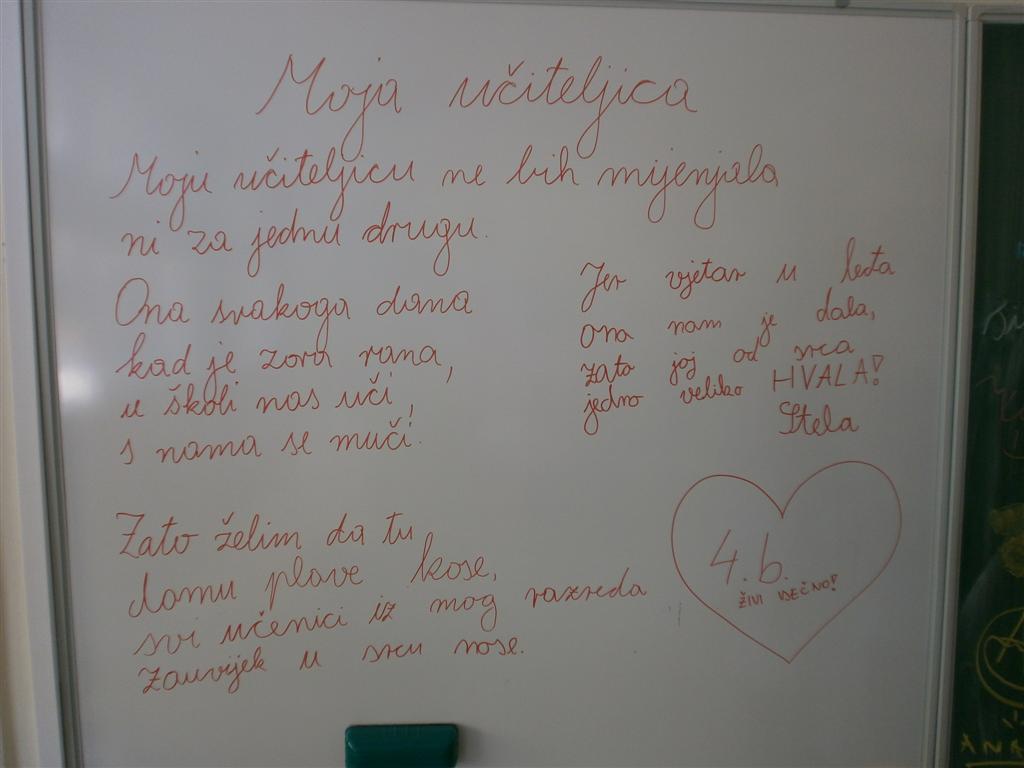 Moja učiteljica
Moju učiteljicu ne bih mijenjala
ni za jednu drugu.
Ona svakoga dana
kad je zora rana,
u školi nas uči,
s nama se muči.
Zato želim da tu
damu plave kose,
svi učenici iz mog razreda
zauvijek u srcu nose.
Jer vjetar u leđa
ona nam je dala,
zato joj od srca
jedno veliko HVALA!
Stela
4.b.
ŽIVI VJEČNO!
ANA